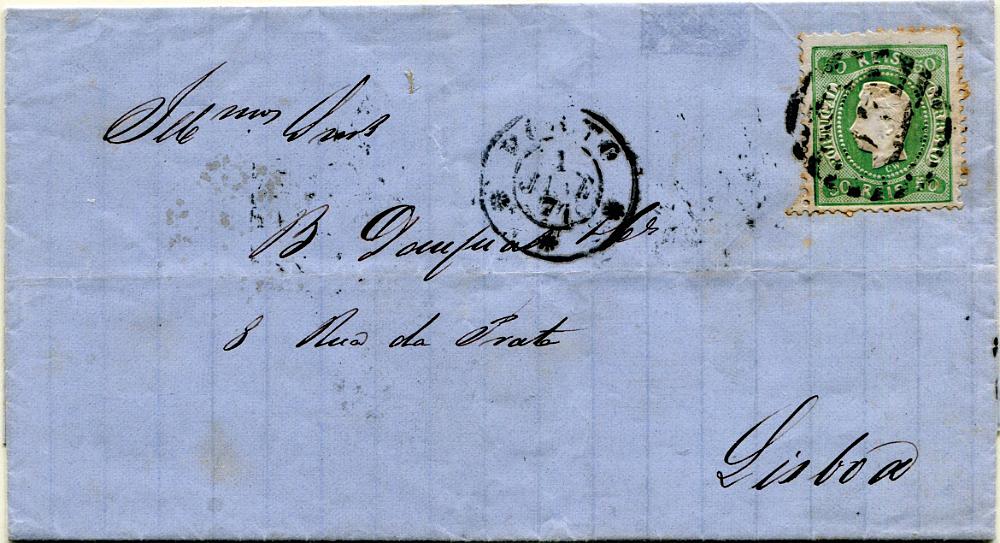 50 REIS 50
PORTUGAL
CORREIO
CW
50 REIS 50
PORTO
1
71
Illmos Snrs
B.
8 Rua da Prata
Lisboa